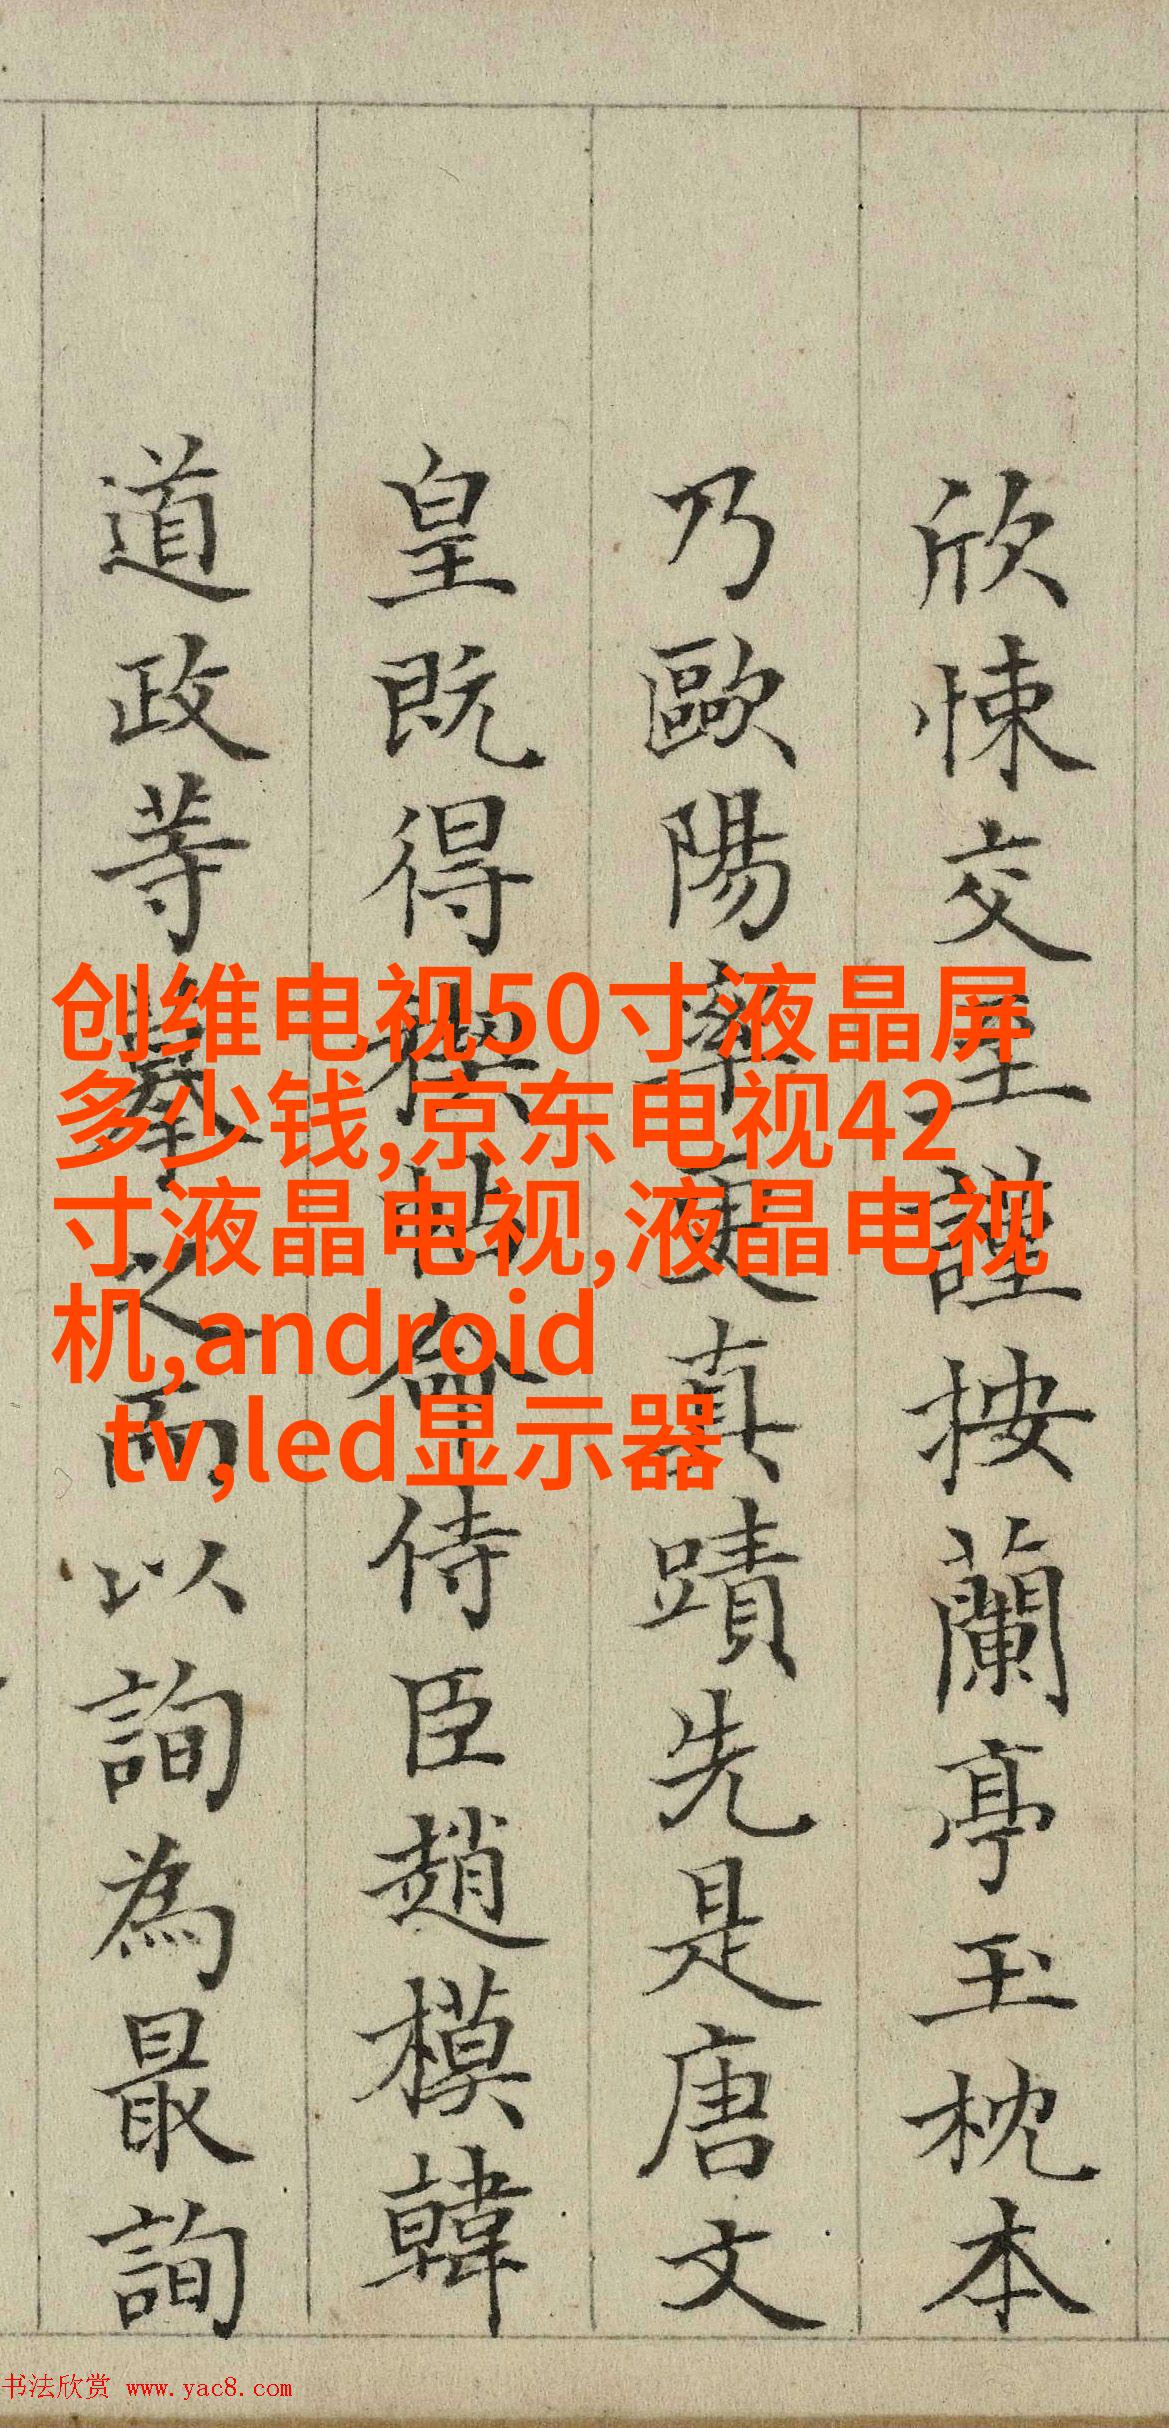 欣悚交至謹按蘭亭玉枕本
乃歐陽率更真蹟先是唐文
皇既得禊帖命侍臣趙模韓
道政等摹之而以詢為最詢
创维电视50寸液晶屏
多少钱,京东电视42
寸液晶电视,液晶电视
机,android
tv,led显示器
书法欣赏 www.yac8.com